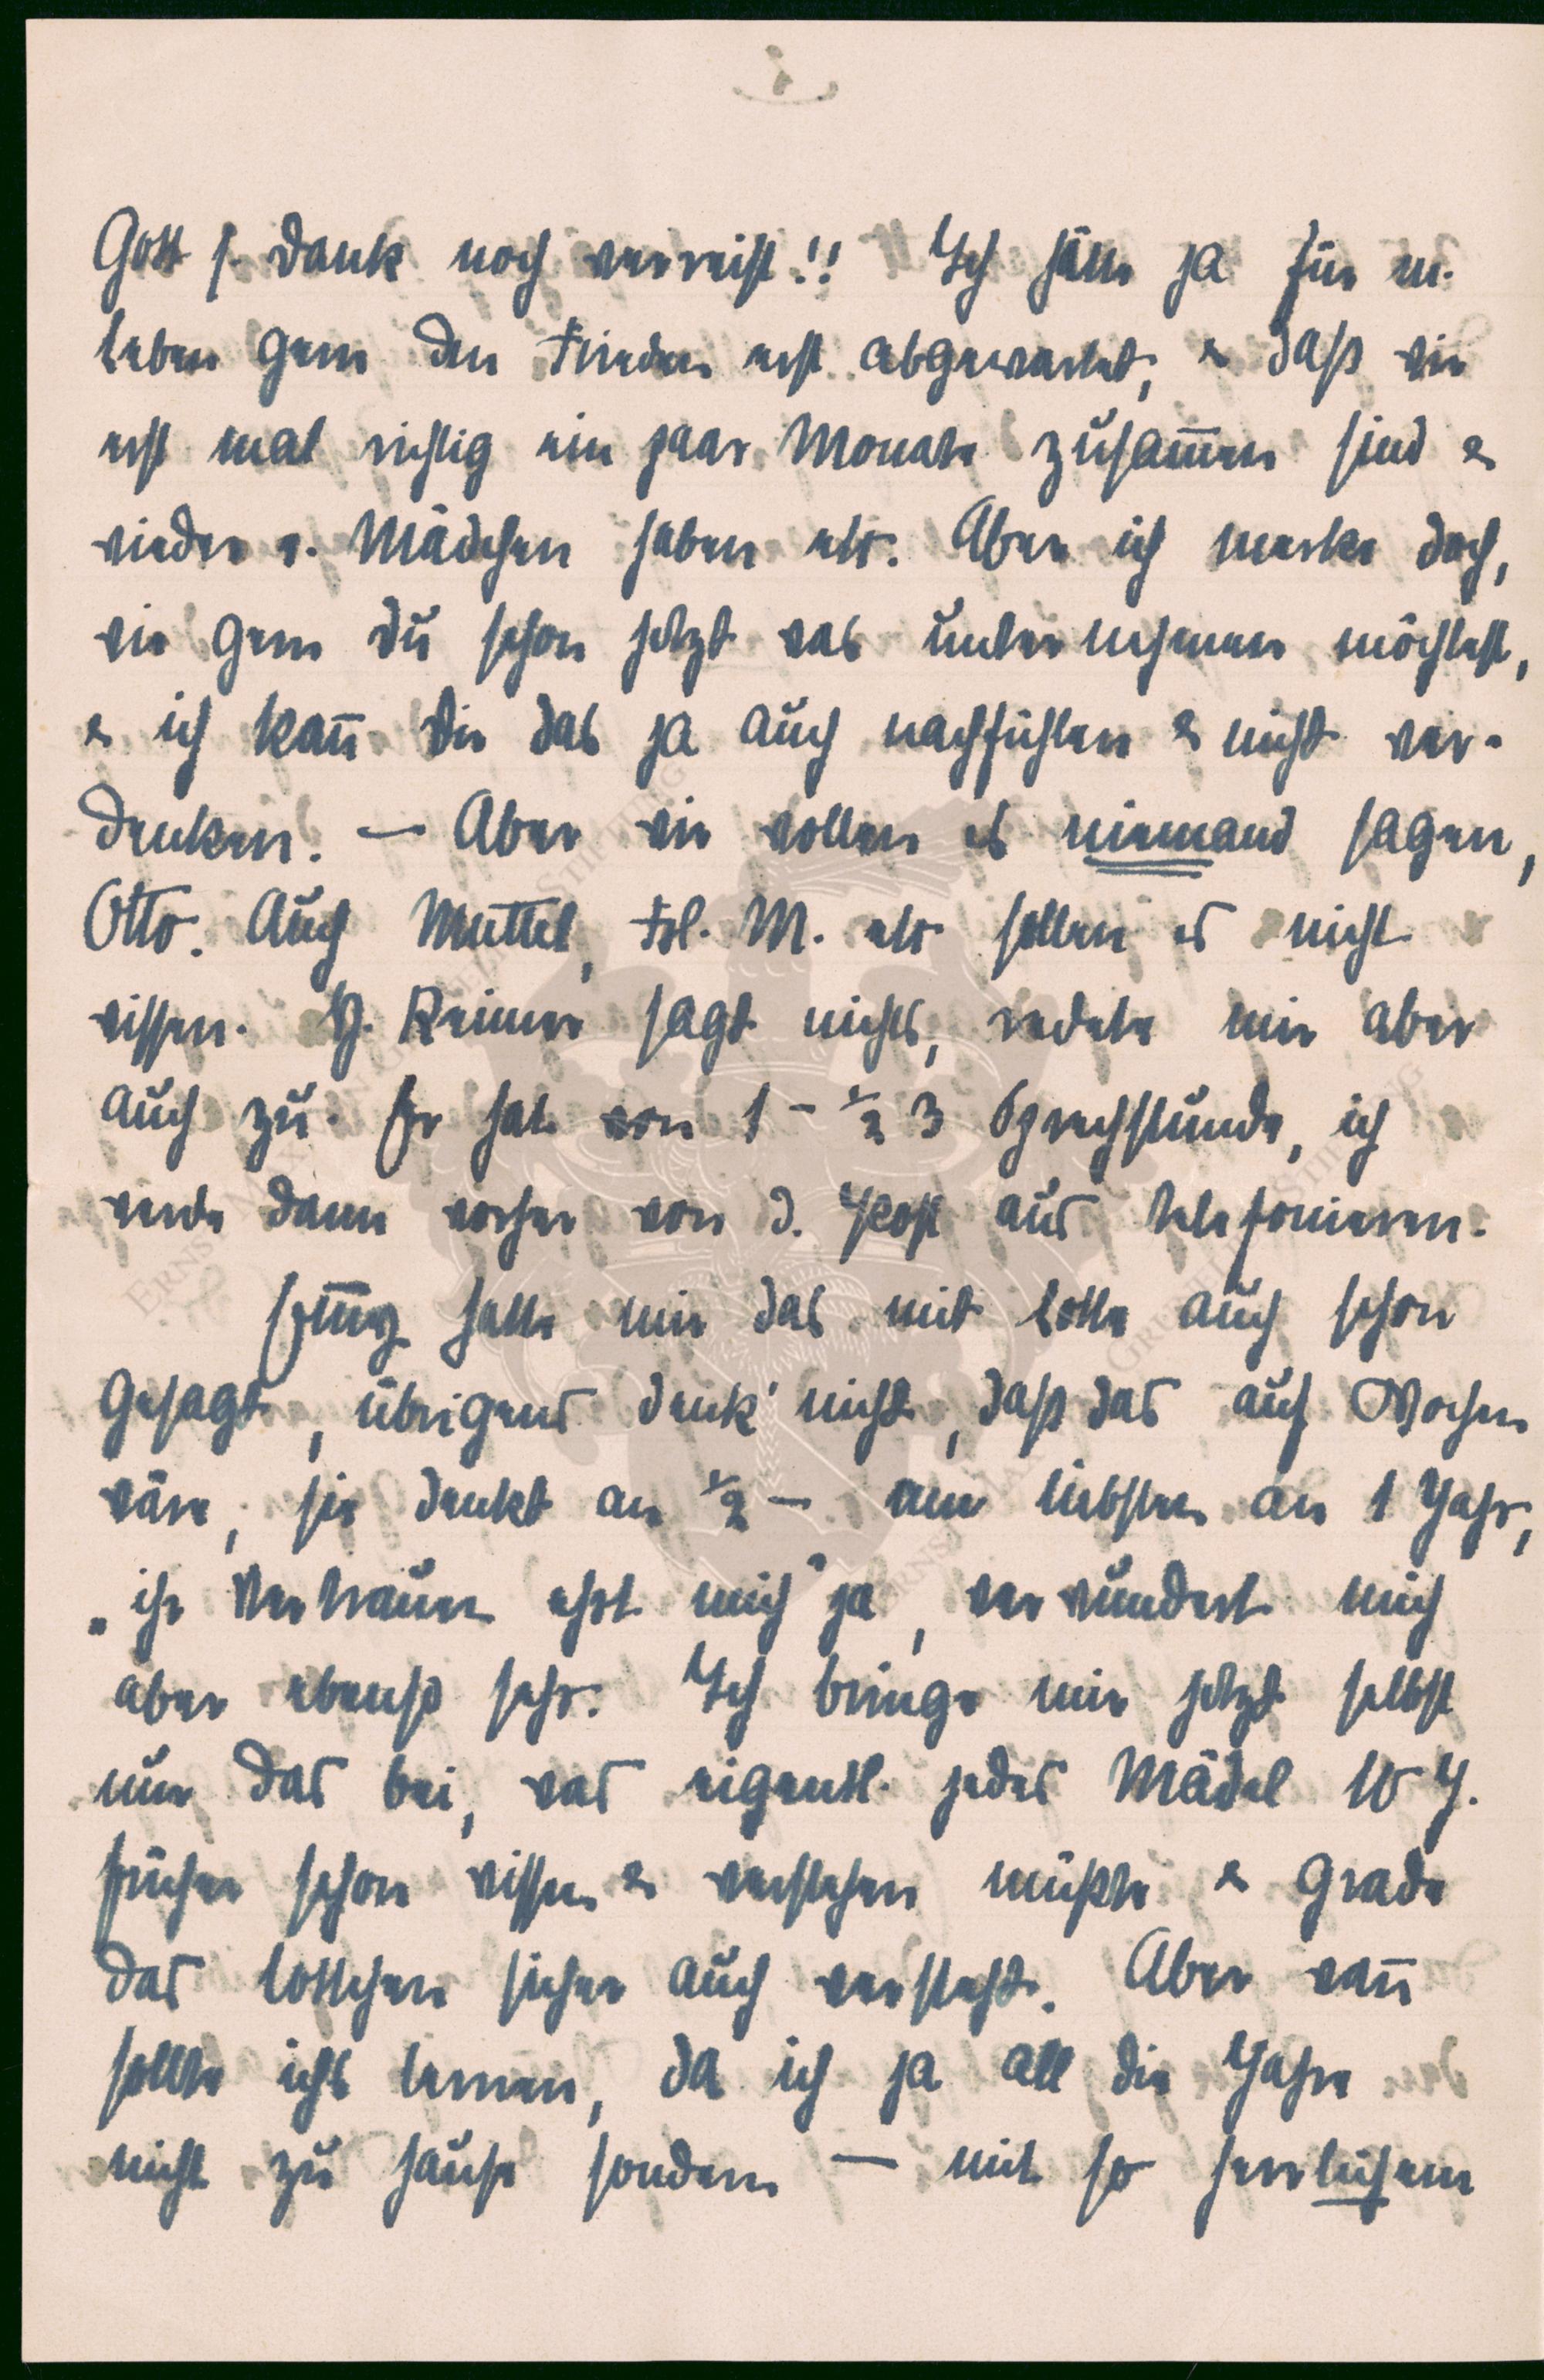 Gott s. Dank noch verreist!! Ich hätte ja für m.
Leben gern den Frieden erst abgewartet, & daß wir
erst mal richtig ein paar Monate zusam̅en sind &
wieder e. Mädchen haben etc. Aber ich merke doch,
wie gern Du schon jetzt was unternehmen möchtest,
& ich kan̅ Dir das ja auch nachfühlen & nicht ver-
denken. — Aber wir wollen es niemand sagen,
Otto. Auch Muttel, Frl. M. etc sollen es nicht
wissen. H. Reimer sagt nichts, redete mir aber
auch zu. Er hat von 1 - ½ 3 Sprechstunde, ich
werde dann vorher von d. Post aus telefonieren.
hatte mir das mit Lotte auch schon
gesagt, übrigens denk' nicht, daß das auf Wochen
wäre, sie denkt an ½ — am liebsten an 1 Jahr,
„ihr Vertrauen ehrt mich" ja, verwundert mich
aber ebenso sehr. Ich bringe mir jetzt selbst
nur das bei, was eigentl. jedes Mädel 10 J.
früher schon wissen & verstehen müßte & grade
das Lottchen sicher auch versteht. Aber wan̅
sollte ichs lernen, da ich ja all die Jahre
nicht zu Hause sondern — mit so herrlichem
ERNST MAX VON GRUNELIUS-STIFTUNG
ERNST MAX VON GRUNELIUS-STIFTUNG